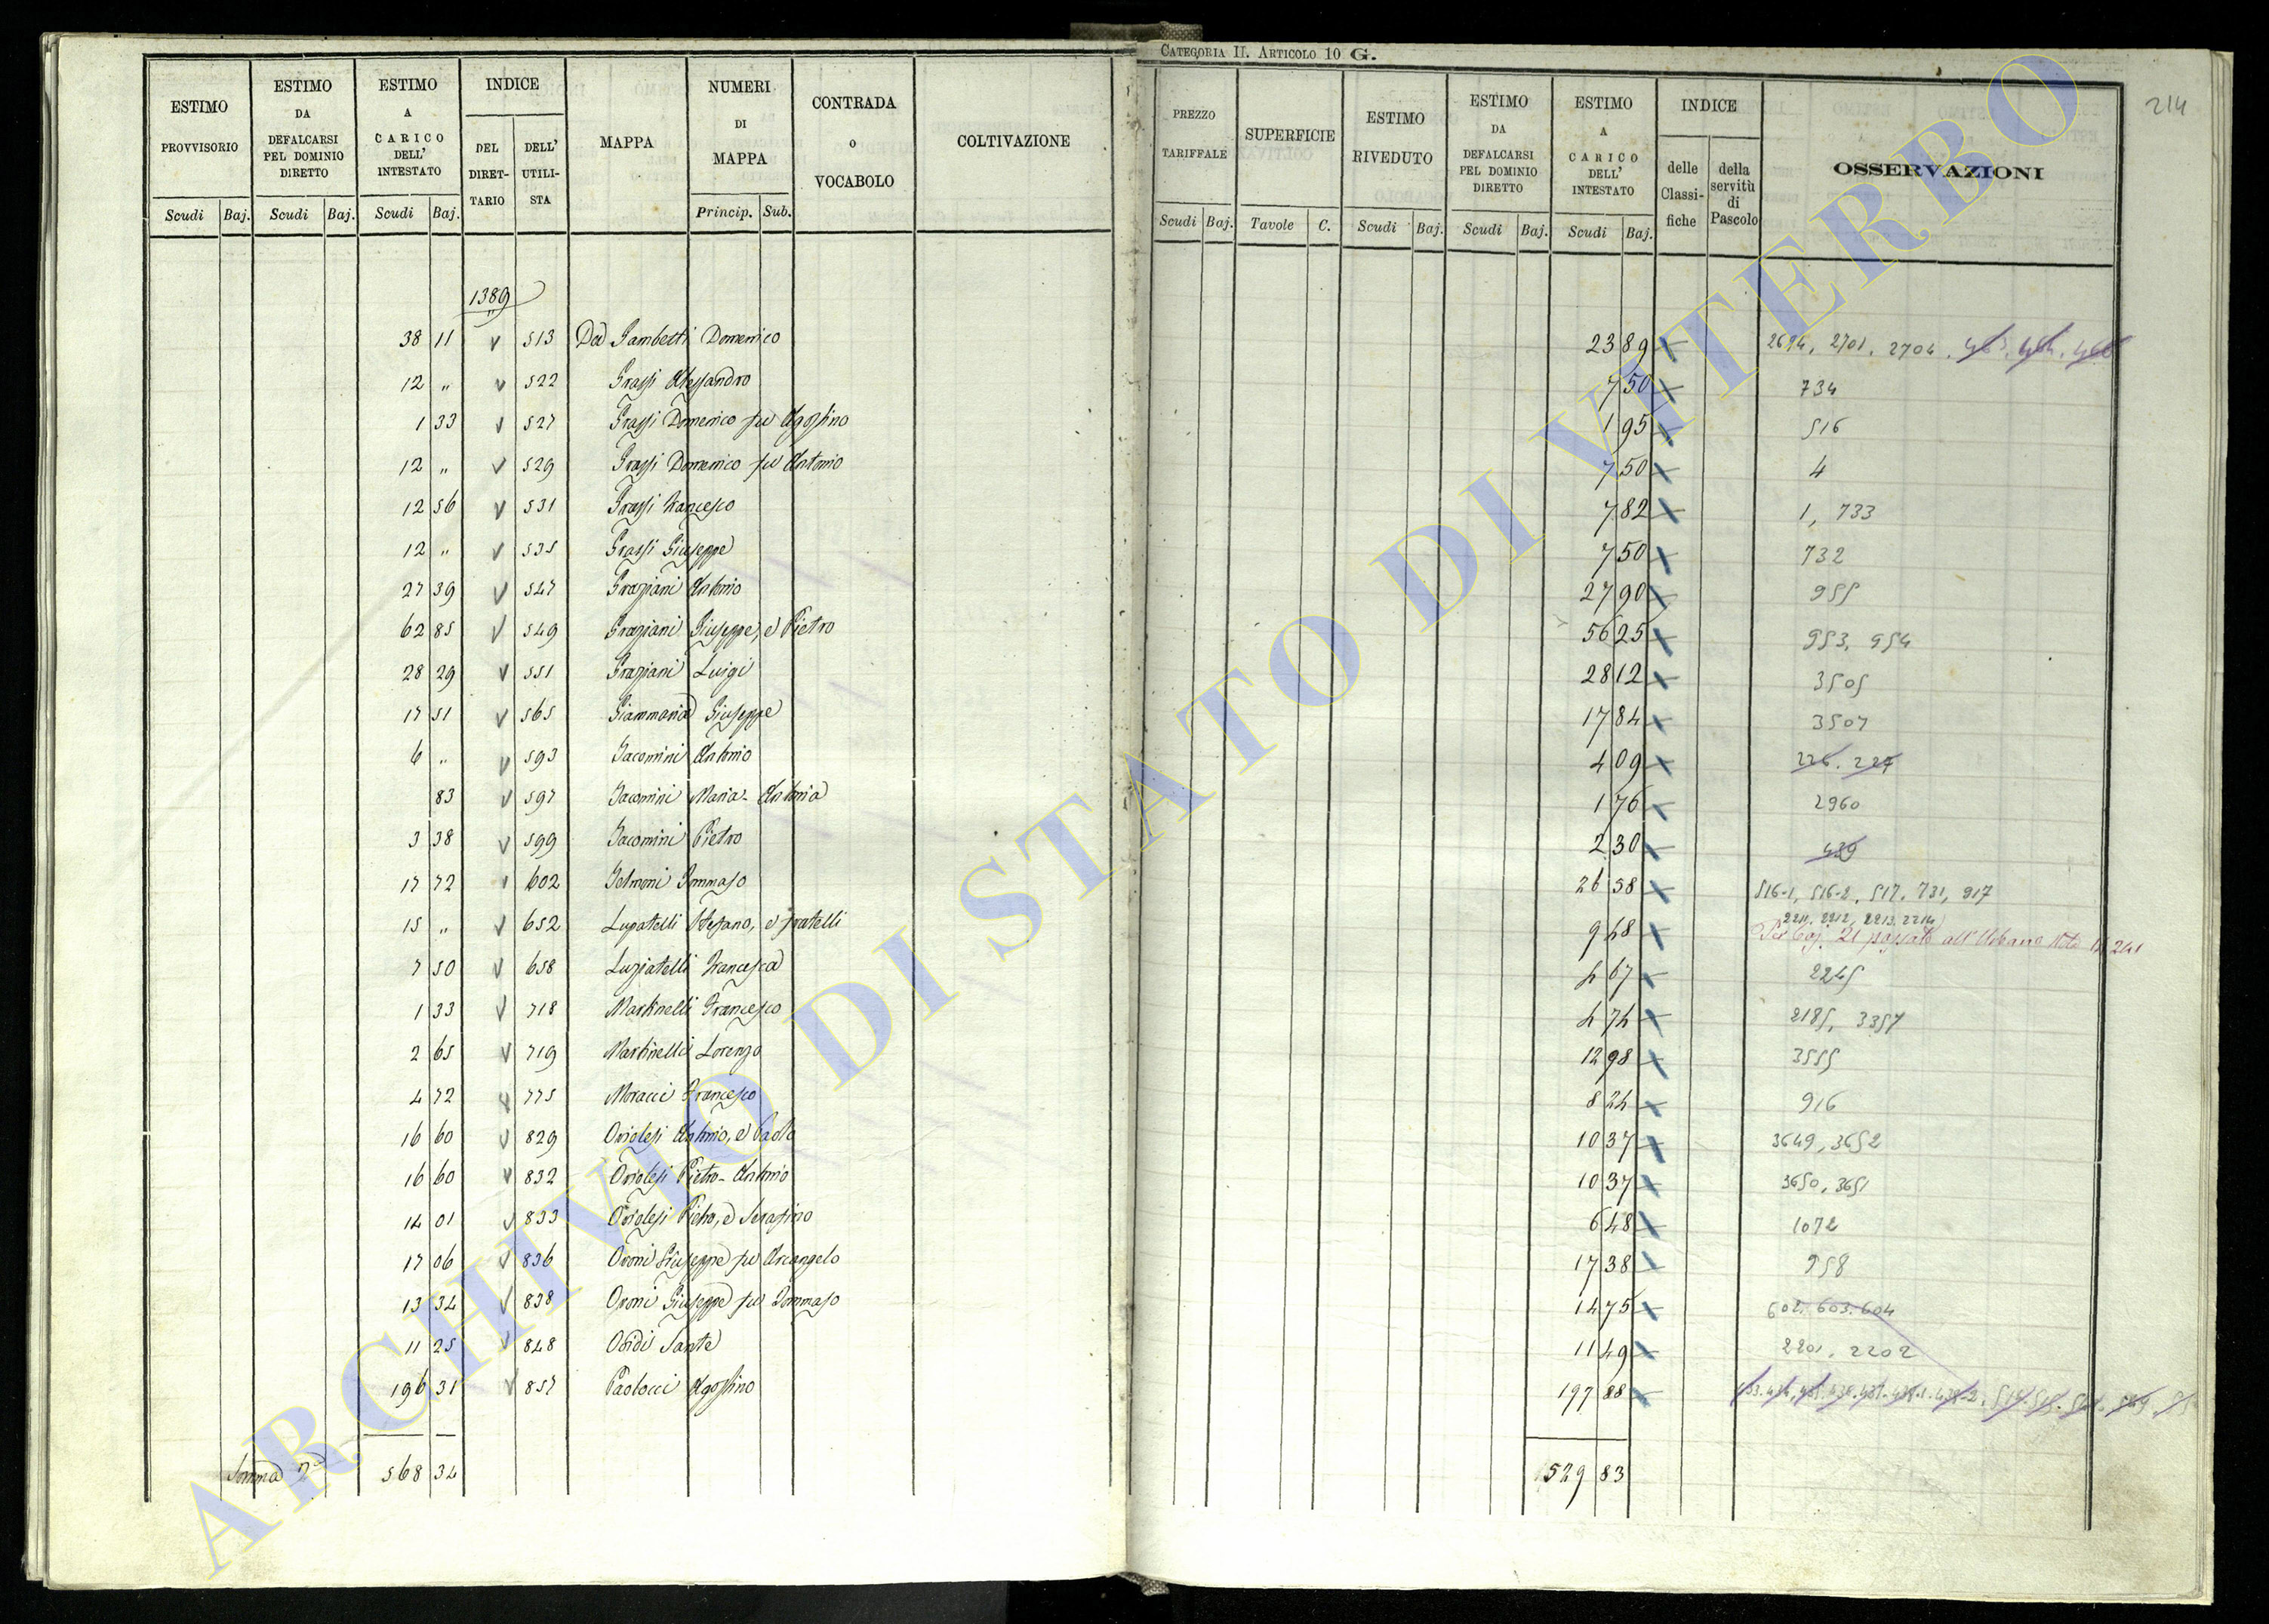 CATEGORIA II. ARTICOLO 10 G.
214
ESTIMO PROVVISORIO Scudi Baj.
ESTIMO DA DEFALCARSI PEL DOMINIO DIRETTO Scudi Baj.
ESTIMO A CARICO DELL' INTESTATO Scudi Baj.
INDICE DEL DIRETTARIO DELL' UTILISTA
MAPPA
NUMERI DI MAPPA Princip. Sub.
CONTRADA o VOCABOLO
COLTIVAZIONE
PREZZO TARIFFALE Scudi Baj.
SUPERFICIE Tavole C.
ESTIMO RIVEDUTO Scudi Baj.
ESTIMO DA DEFALCARSI PEL DOMINIO DIRETTO Scudi Baj.
ESTIMO A CARICO DELL' INTESTATO Scudi Baj.
INDICE delle Classifiche della servitù di Pascolo
OSSERVAZIONI
1389
38 11 513 Da Gambetti Domenico 23 89 2694, 2701, 2704
12 " 522 Grassi Alessandro 7 50 734
1 33 527 Grassi Domenico fu Agostino 1 95 516
12 " 529 Grassi Domenico fu Antonio 7 50 4
12 56 531 Grassi Francesco 7 82 1, 733
12 " 535 Grassi Giuseppe 7 50 732
27 39 547 Graziani Antonio 27 90 955
62 85 549 Graziani Giuseppe, e Pietro 56 25 953, 954
28 29 551 Graziani Luigi 28 12 3505
17 51 565 Giammaria Giuseppe 17 84 3507
6 " 593 Jacomini Antonio 4 09 226. 227
83 597 Jacomini Maria-Antonia 1 76 2960
3 38 599 Jacomini Pietro 2 30 439
17 72 602 Jelmoni Tommaso 26 58 516-1, 516-2, 517, 731, 917
15 " 652 Lupatelli Stefano, e fratelli 9 48 2211, 2212, 2213, 2214
Per baj. 21 passato all'Urbano
7 50 658 Luziatelli Francesca 4 67 2245
1 33 718 Martinelli Francesco 4 74 2185, 3357
2 65 719 Martinelli Lorenzo 12 98 3555
4 72 775 Moracci Francesco 8 24 916
16 60 829 Oriolesi Antonio, e Paolo 10 37 3649, 3652
16 60 832 Oriolesi Pietro-Antonio 10 37 3650, 3651
14 01 833 Oriolesi Pietro, e Serafino 6 48 1072
17 06 836 Oroni Giuseppe fu Arcangelo 17 38 958
13 34 838 Oroni Giuseppe fu Tommaso 14 75 602. 603. 604
11 25 848 Ovidi Sante 11 49 2201, 2202
196 31 857 Paolocci Agostino 197 88
Somma 2a 568 34 529 83
ARCHIVIO DI STATO DI VITERBO